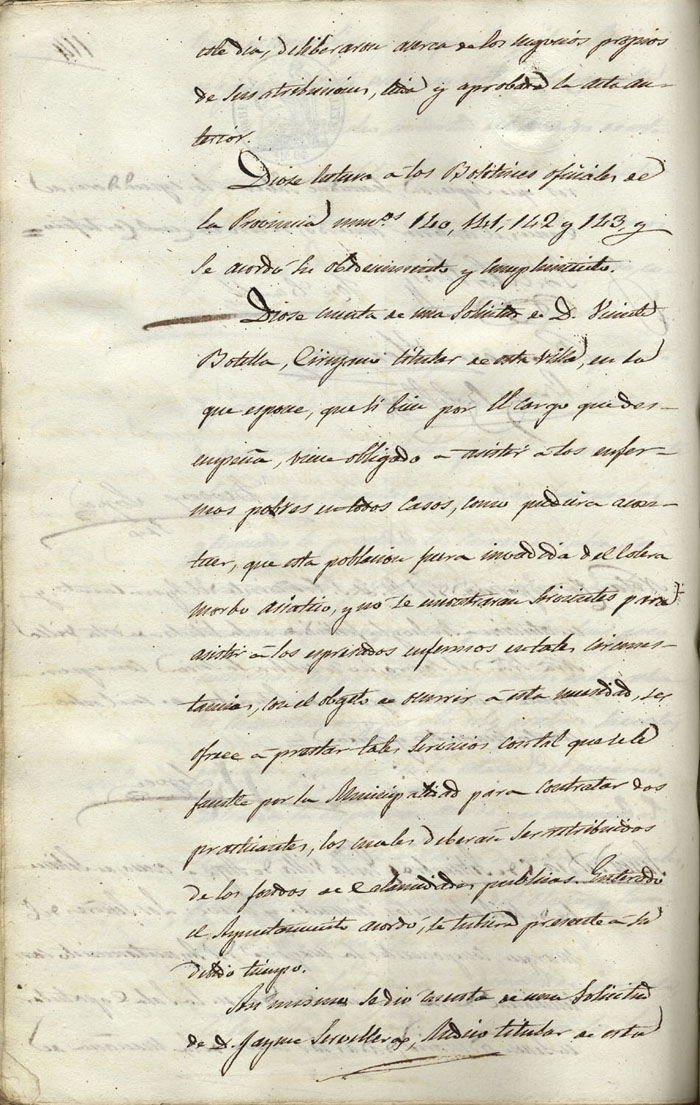 114
este dia, deliberaron acerca de los negocios propios
de sus atribuciones, leida y aprobada la acta an-
terior.
Diose lectura a los Boletines oficiales de
la Provincia numos 140, 141, 142 y 143, y
se acordó su obedecimiento y cumplimiento.
Diose cuenta de una solicitud de D. Vicente
Botella, Cirujano titular de esta villa, en la
que espone, que si bien por el cargo que des-
empeña, viene obligado a asistir a los enfer-
mos pobres en todos casos, como pudiera acon-
tecer, que esta poblacion fuera invadida del Colera
morbo asiatico, y no se encontraran sirvientes para
asistir a los espresados enfermos en tales circuns-
tancias, con el objeto de ocurrir a esta necesidad, se
ofrece a prestar tales servicios con tal que se le
faculte por la Municipalidad para contratar dos
practicantes, los cuales deberan ser retribuidos
de los fondos de Calamidades publicas. Enterado
el Ayuntamiento acordó, se tubiera presente a su
debido tiempo.
Asi mismo se dio cuenta de una solicitud
de D. Jayme Servillera, Medico titular de esta